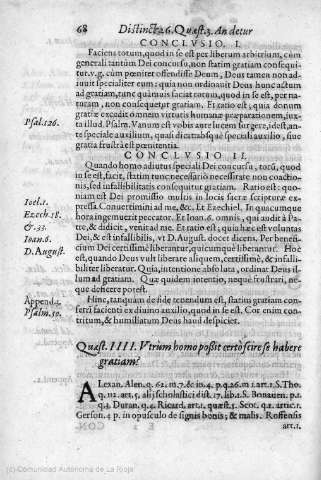 68 Distinct. 26. Quæst. 3. An detur
CONCLVSIO. I.
Faciens totum, quod in se est per liberum arbitrium, cùm
generali tantùm Dei concursu, non statim gratiam consequi-
tur. v. g. cùm pœnitet offendisse Deum, Deus tamen non ad-
iuuit specialiter eum: quia non ordinauit Deus hunc actum
ad gratiam, tunc quamuis faciat totum, quod in se est, per na-
turam, non consequetur gratiam. Et ratio est; quia donum
gratiæ excedit omnem virtutis humanæ præparationem, iux-
Psal. 126.
ta illud Psalm. Vanum est vobis ante lucem surgere, id est, an-
te speciale auxilium, quasi dicat absque speculi auxilio, siue
gratia frustrà est pœnitentia.
CONCLVSIO II.
Quando homo adiutus speciali Dei concursu, totũ, quod
in se est, facit, statim tunc necessariò necessitate non coactio-
nis, sed infallibilitatis consequitur gratiam. Ratio est: quo-
niam est Dei promissio multis in locis sacræ scripturæ ex-
Ioel. 1.
pressa. Conuertimini ad me, &c. Et Ezechiel. In quacumque
Ezech. 18.
hora ingemuerit peccator. Et Ioan. 6. omnis, qui audit à Pa-
& 33.
tre, & didicit, venit ad me. Et ratio est, quia hæc est voluntas
Ioan. 6.
Dei, & est infallibilis, vt D. August. docet dicens. Per benefi-
D. August.
cium Dei certissimè liberantur, quicumque liberantur. Hoc
est, quando Deus vult liberare aliquem, certissimè, & infalli-
biliter liberatur. Quia, intentione absoluta, ordinat Deus il-
lum ad gratiam. Quæ quidem intentio, neque frustrari, ne-
que deficere potest.
Append.
Hinc, tanquam de fide tenendum est, statim gratiam con-
Psalm. 50.
ferri facienti ex diuino auxilio, quod in se est. Cor enim con-
tritum, & humiliatum Deus haud despiciet.
Quæst. IIII. Vtrum homo possit certò scire se habere
gratiam?
ALexan. Alen. q. 62. m. 7. & in 4. p. q. 26. m 1. art. 1. S. Tho.
q. 112. art. 5. alij scholastici dist. 17. lib. 1. S. Bonauen. p. 1.
q. 4. Duran. q. 4. Ricard. art. 1. quæst. 5. Scot. q. 1. artic. 1.
Gerson. 4 p. in opusculo de signis bonis; & malis. Roffensis
art. 1.
(c) Comunidad Autónoma de La Rioja